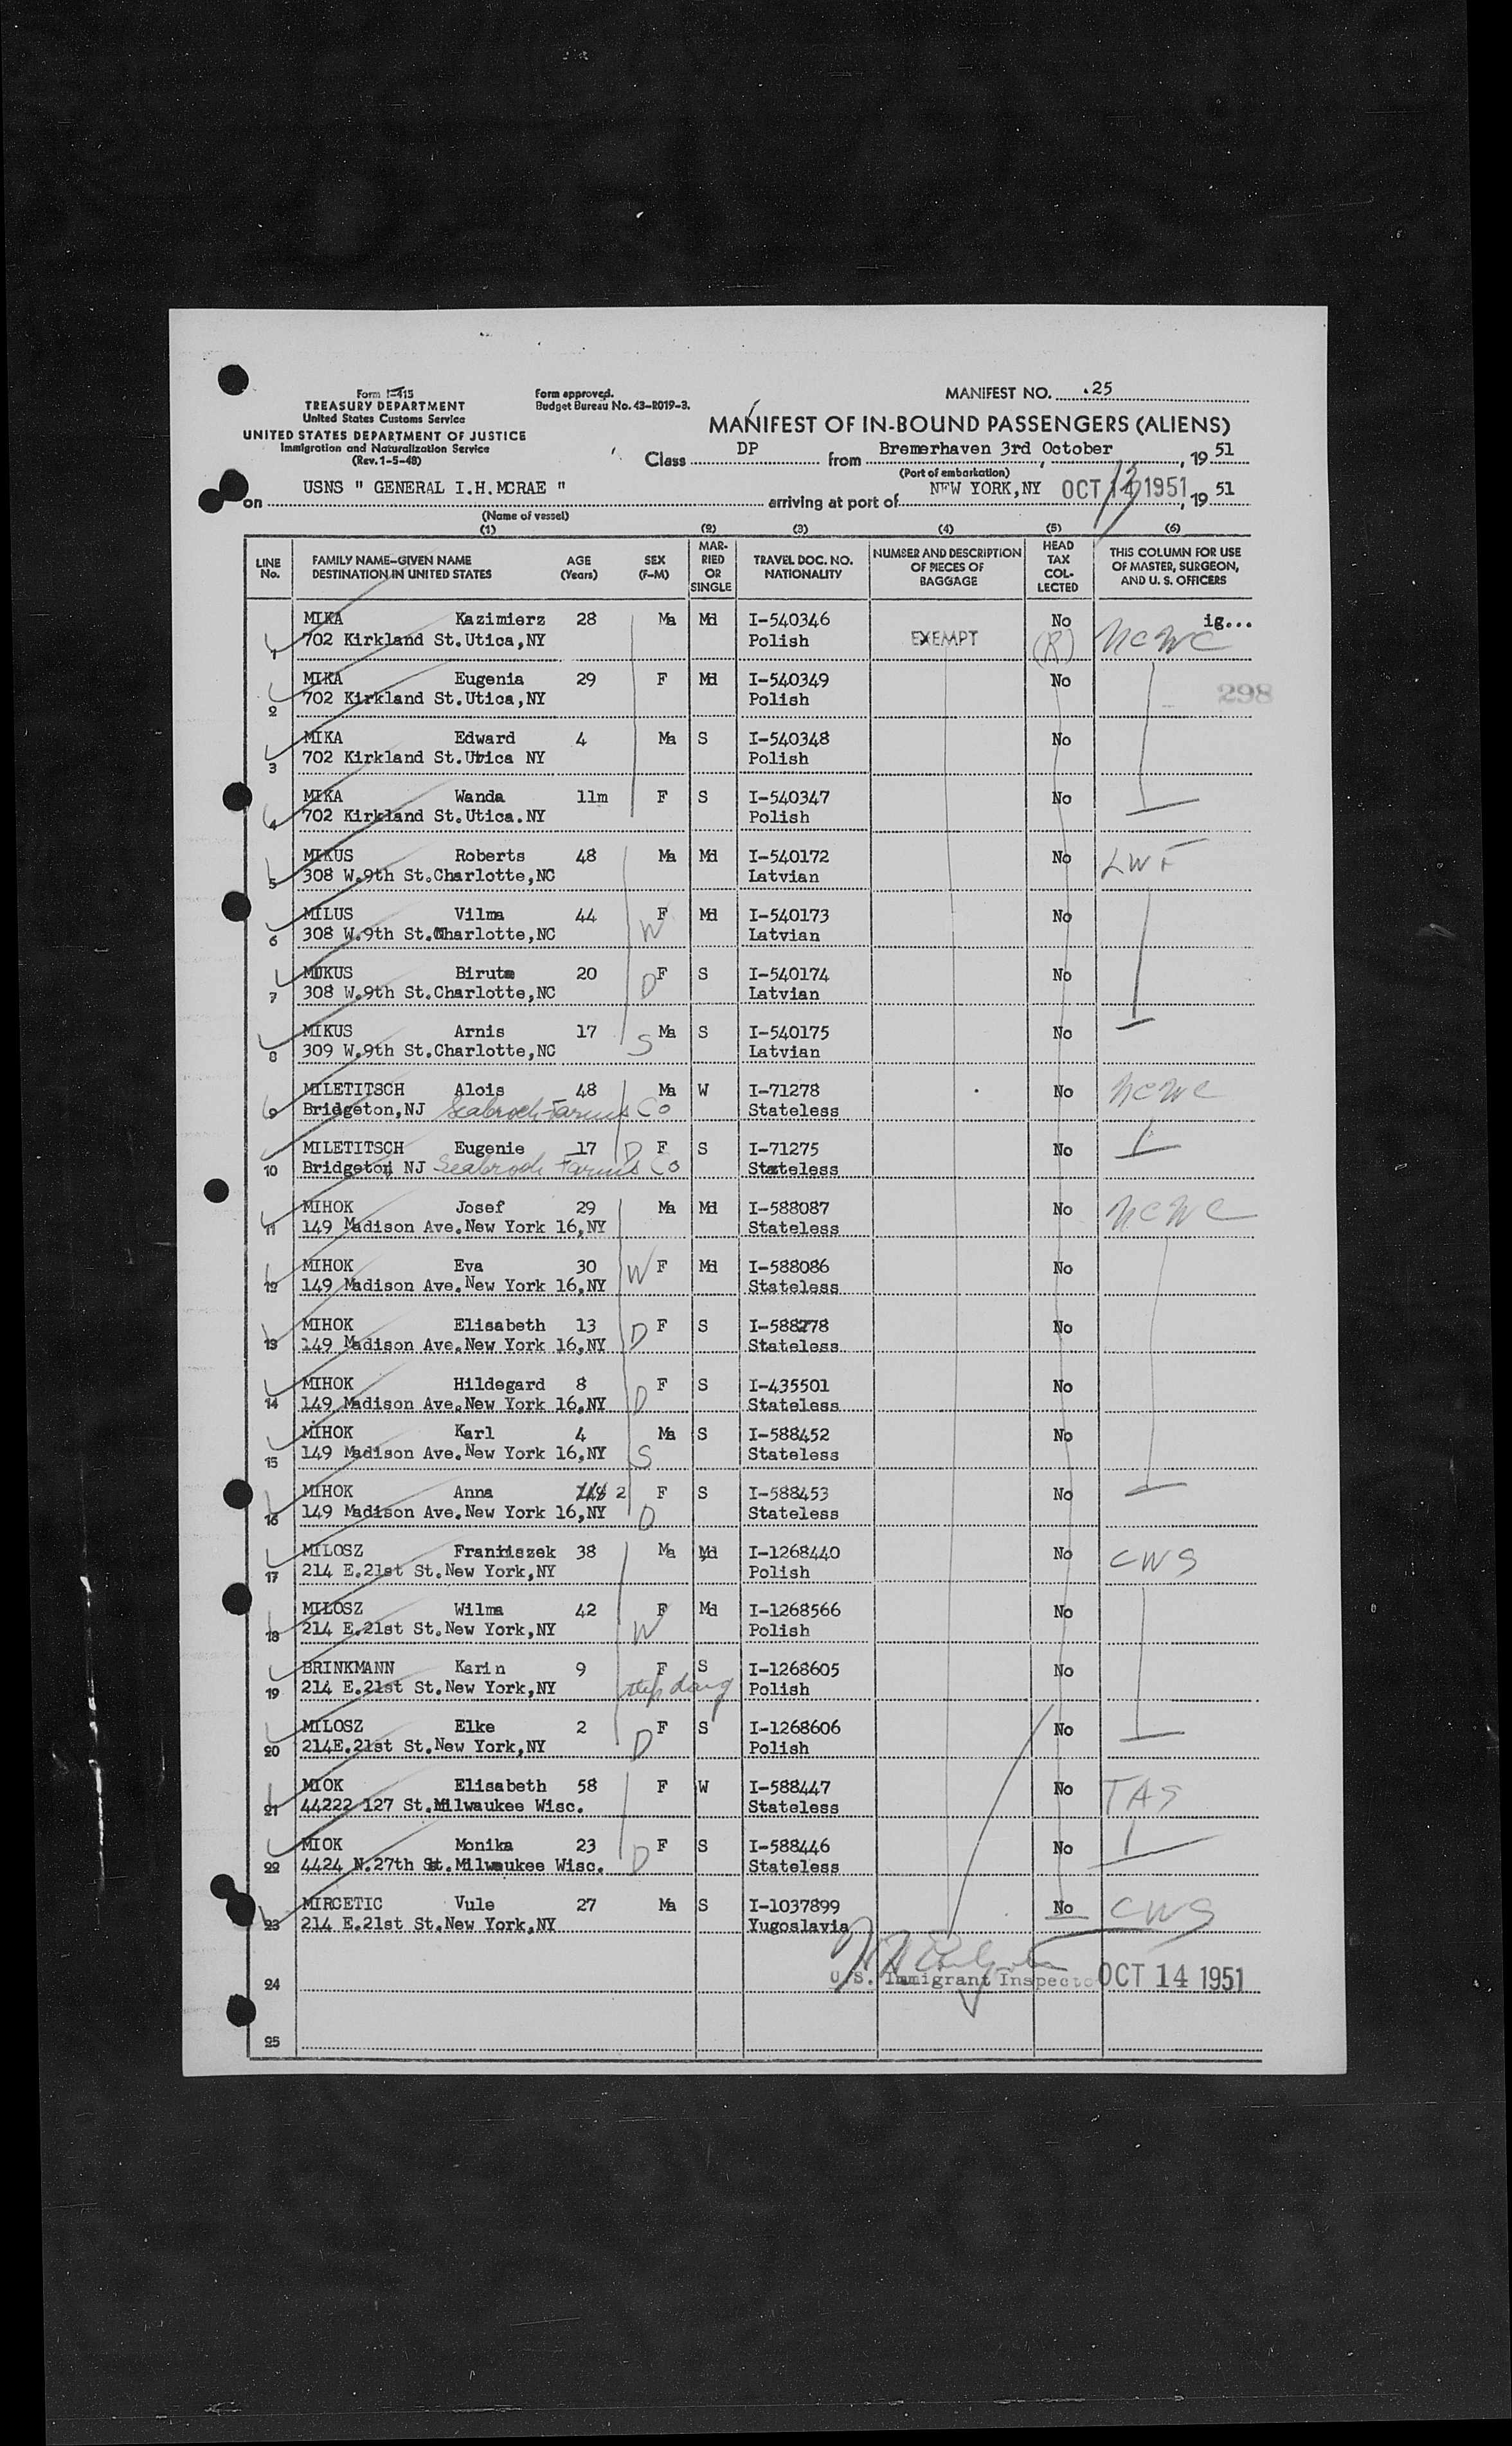 Form I-415
TREASURY DEPARTMENT
United States Customs Service
UNITED STATES DEPARTMENT OF JUSTICE
Immigration and Naturalization Service
(Rev. 1-5-48)
Form approved.
Budget Bureau No. 43-R019-3.
MANIFEST NO. .25
MANIFEST OF IN-BOUND PASSENGERS (ALIENS)
Class DP from Bremerhaven 3rd October, 19 51
(Port of embarkation)
on USNS " GENERAL I.H.MCRAE " arriving at port of NEW YORK,NY OCT 14 1951, 19 51
13
(Name of vessel)
(1) (2) (3) (4) (5) (6)
LINE No. FAMILY NAME-GIVEN NAME DESTINATION IN UNITED STATES AGE (Years) SEX (F-M) MARRIED OR SINGLE TRAVEL DOC. NO. NATIONALITY NUMBER AND DESCRIPTION OF PIECES OF BAGGAGE HEAD TAX COLLECTED THIS COLUMN FOR USE OF MASTER, SURGEON, AND U. S. OFFICERS
MIKA Kazimierz 28 Ma Md I-540346 No ig...
1 702 Kirkland St.Utica,NY Polish EXEMPT (R) NCWC
MIKA Eugenia 29 F Md I-540349 No
2 702 Kirkland St.Utica,NY Polish 298
MIKA Edward 4 Ma S I-540348 No
3 702 Kirkland St.Utica NY Polish
MIKA Wanda 11m F S I-540347 No
4 702 Kirkland St.Utica.NY Polish
MIKUS Roberts 48 Ma Md I-540172 No LWF
5 308 W.9th St.Charlotte,NC Latvian
MILUS Vilma 44 F Md I-540173 No
6 308 W.9th St.Charlotte,NC W Latvian
MIKUS Birute 20 D F S I-540174 No
7 308 W.9th St.Charlotte,NC Latvian
MIKUS Arnis 17 Ma S I-540175 No
8 309 W.9th St.Charlotte,NC S Latvian
MILETITSCH Alois 48 Ma W I-71278 No NCWC
9 Bridgeton,NJ Seabrook Farms Co Stateless
MILETITSCH Eugenie 17 D F S I-71275 No
10 Bridgeton NJ Seabrook Farms Co Stateless
MIHOK Josef 29 Ma Md I-588087 No NCWC
11 149 Madison Ave.New York 16,NY Stateless
MIHOK Eva 30 W F Md I-588086 No
12 149 Madison Ave.New York 16,NY Stateless
MIHOK Elisabeth 13 D F S I-588278 No
13 149 Madison Ave.New York 16,NY Stateless
MIHOK Hildegard 8 F S I-435501 No
14 149 Madison Ave.New York 16,NY D Stateless
MIHOK Karl 4 Ma S I-588452 No
15 149 Madison Ave.New York 16,NY S Stateless
MIHOK Anna 2 F S I-588453 No
16 149 Madison Ave.New York 16,NY D Stateless
MILOSZ Franziszek 38 Ma Md I-1268440 No CWS
17 214 E.21st St.New York,NY Polish
MILOSZ Wilma 42 F Md I-1268566 No
18 214 E.21st St.New York,NY W Polish
BRINKMANN Karin 9 F S I-1268605 No
19 214 E.21st St.New York,NY step daug Polish
MILOSZ Elke 2 F S I-1268606 No
20 214E.21st St.New York,NY D Polish
MIOK Elisabeth 58 F W I-588447 No TAS
21 44222 127 St.Milwaukee Wisc. Stateless
MIOK Monika 23 F S I-588446 No
22 4424 N.27th St.Milwaukee Wisc. D Stateless
MIRCETIC Vule 27 Ma S I-1037899 No CWS
23 214 E.21st St.New York,NY Yugoslavia
24 U.S. Immigrant Inspector OCT 14 1951
25